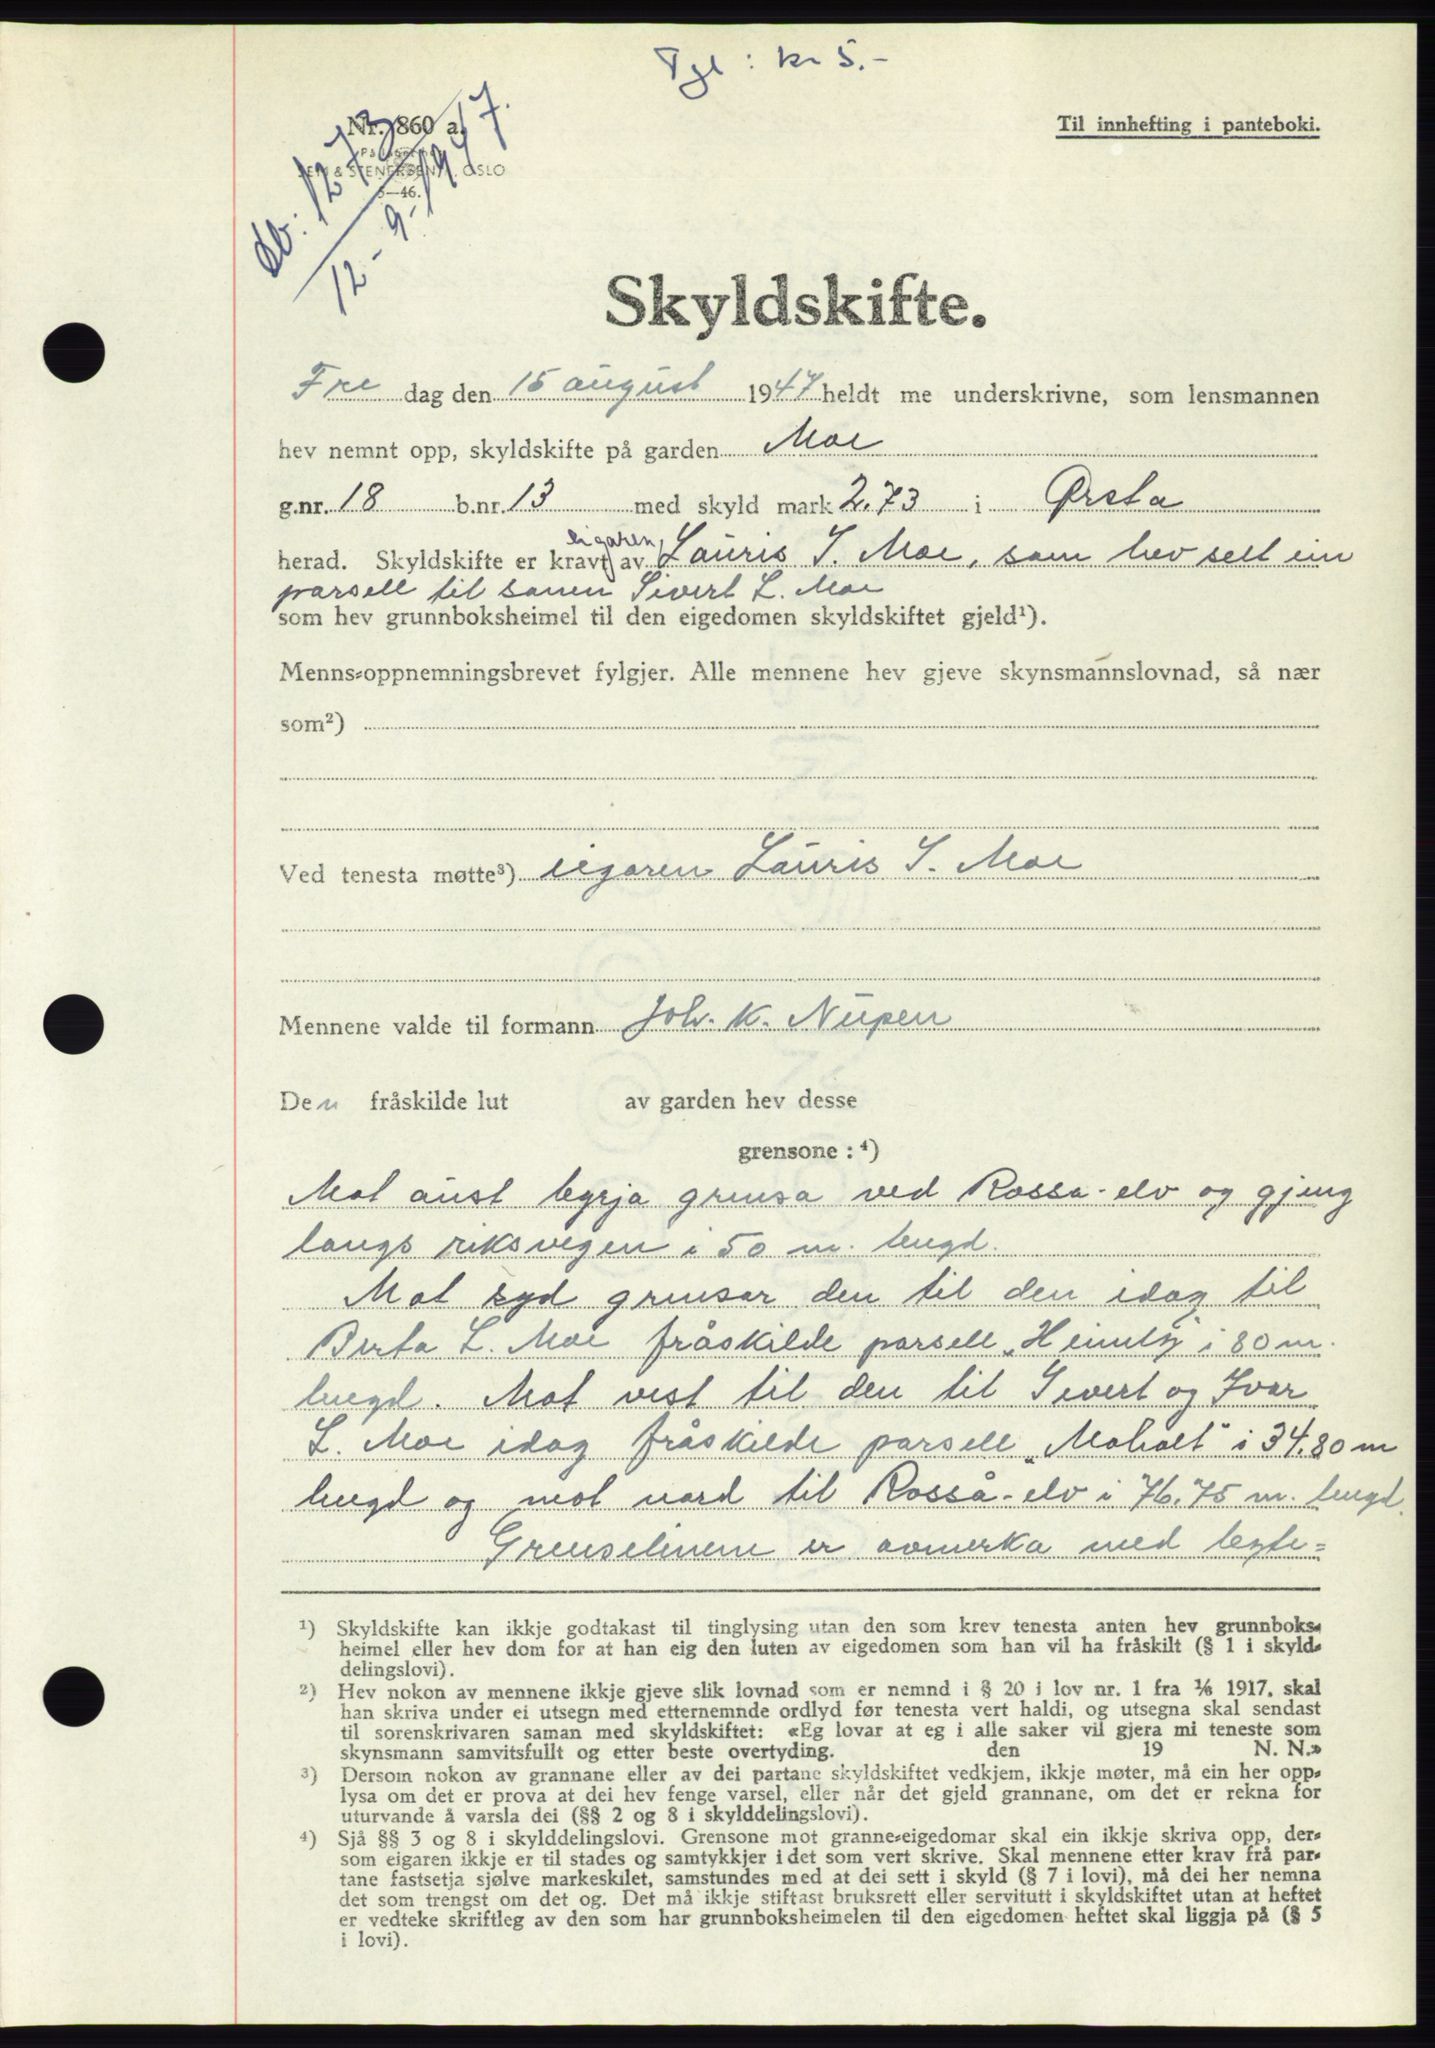 Tgl: kr 5.-
Nr. 860 a.
På lager hos
SEM & STENERSEN A/S, OSLO
5—46.
Til innhefting i panteboki.
db: 1273
12-9-1947.
Skyldskifte.
Fre dag den 15 august 1947 heldt me underskrivne, som lensmannen
hev nemnt opp, skyldskifte på garden Moe
g.nr. 18 b.nr. 13 med skyld mark 2.73 i Ørsta
herad. Skyldskifte er kravt eigaren av Lauris S. Moe, som hev selt ein
parsell til sonen Sivert L. Moe
som hev grunnboksheimel til den eigedomen skyldskiftet gjeld¹).
Menns-oppnemningsbrevet fylgjer. Alle mennene hev gjeve skynsmannslovnad, så nær
som²)
Ved tenesta møtte³) eigaren Lauris S. Moe
Mennene valde til formann Joh. K. Nupen
Den fråskilde lut av garden hev desse
grensone : ⁴)
Mot aust byrja grensa ved Rossa-elv og gjeng
langs riksvegen i 50 m. lengd.
Mot syd grensar den til den idag til
Berta L. Moe fråskilde parsell „Heimly" i 80 m.
lengd. Mot vest til den til Sivert og Ivar
L. Moe idag fråskilde parsell „Moholt" i 34.80 m
lengd og mot nord til Rosså-elv i 76.75 m. lengd.
Grenselinene er avmerka med
¹) Skyldskifte kan ikkje godtakast til tinglysing utan den som krev tenesta anten hev grunnboks-
heimel eller hev dom for at han eig den luten av eigedomen som han vil ha fråskilt (§ 1 i skyld-
delingslovi).
²) Hev nokon av mennene ikkje gjeve slik lovnad som er nemnd i § 20 i lov nr. 1 fra ¹/₆ 1917, skal
han skriva under ei utsegn med etternemnde ordlyd før tenesta vert haldi, og utsegna skal sendast
til sorenskrivaren saman med skyldskiftet: «Eg lovar at eg i alle saker vil gjera mi teneste som
skynsmann samvitsfullt og etter beste overtyding. den 19 N. N.»
³) Dersom nokon av grannane eller av dei partane skyldskiftet vedkjem, ikkje møter, må ein her opp-
lysa om det er prova at dei hev fenge varsel, eller når det gjeld grannane, om det er rekna for
uturvande å varsla dei (§§ 2 og 8 i skylddelingslovi).
⁴) Sjå §§ 3 og 8 i skylddelingslovi. Grensone mot granne-eigedomar skal ein ikkje skriva opp, der-
som eigaren ikkje er til stades og samtykkjer i det som vert skrive. Skal mennene etter krav frå par-
tane fastsetja sjølve markeskilet, samstundes med at dei sett i skyld (§ 7 i lovi), må dei her nemna
det som trengst om det og. Det må ikkje stiftast bruksrett eller servitutt i skyldskiftet utan at heftet
er vedteke skriftleg av den som har grunnboksheimelen til den eigedomen heftet skal liggja på (§ 5
i lovi).